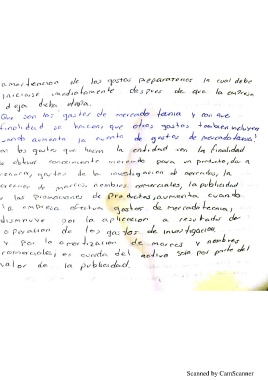 amortización de los gastos preparatorios la cual debe
iniciarse inmediatamente despues de que la empresa
deja dicha etapa.
Que son los gastos de mercadotecnia y con que
finalidad se hacen, que otros gastos tambien incluyen
cuando aumenta la cuenta de gastos de mercadotecnia?
on los gastos que hacen la entidad con la finalidad
obtener conocimiento mercado para un producto, dar a
gastos de la investigacion de mercados, la
creacion de marcas, nombres comerciales, la publicidad
y las promociones de productos, aumenta cuando
la empresa efectua gastos de mercadotecnia,
disminuye por la aplicacion a resultados de
operacion de los gastos de investigacion
y por la amortizacion de marcas y nombres
comerciales, es cuenta del activo solo por parte del
valor de la publicidad.
Scanned by CamScanner